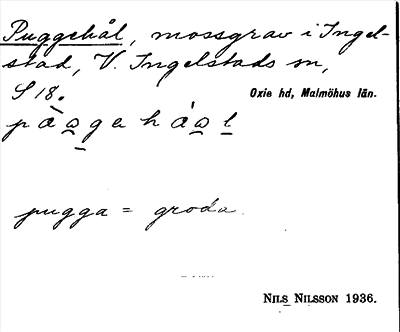 Puggehål, mossgrav i Ingel-
stad, V. Ingelstads sn,
S 18.
Oxie hd, Malmöhus län.
pugga = groda.
NILS NILSSON 1936.